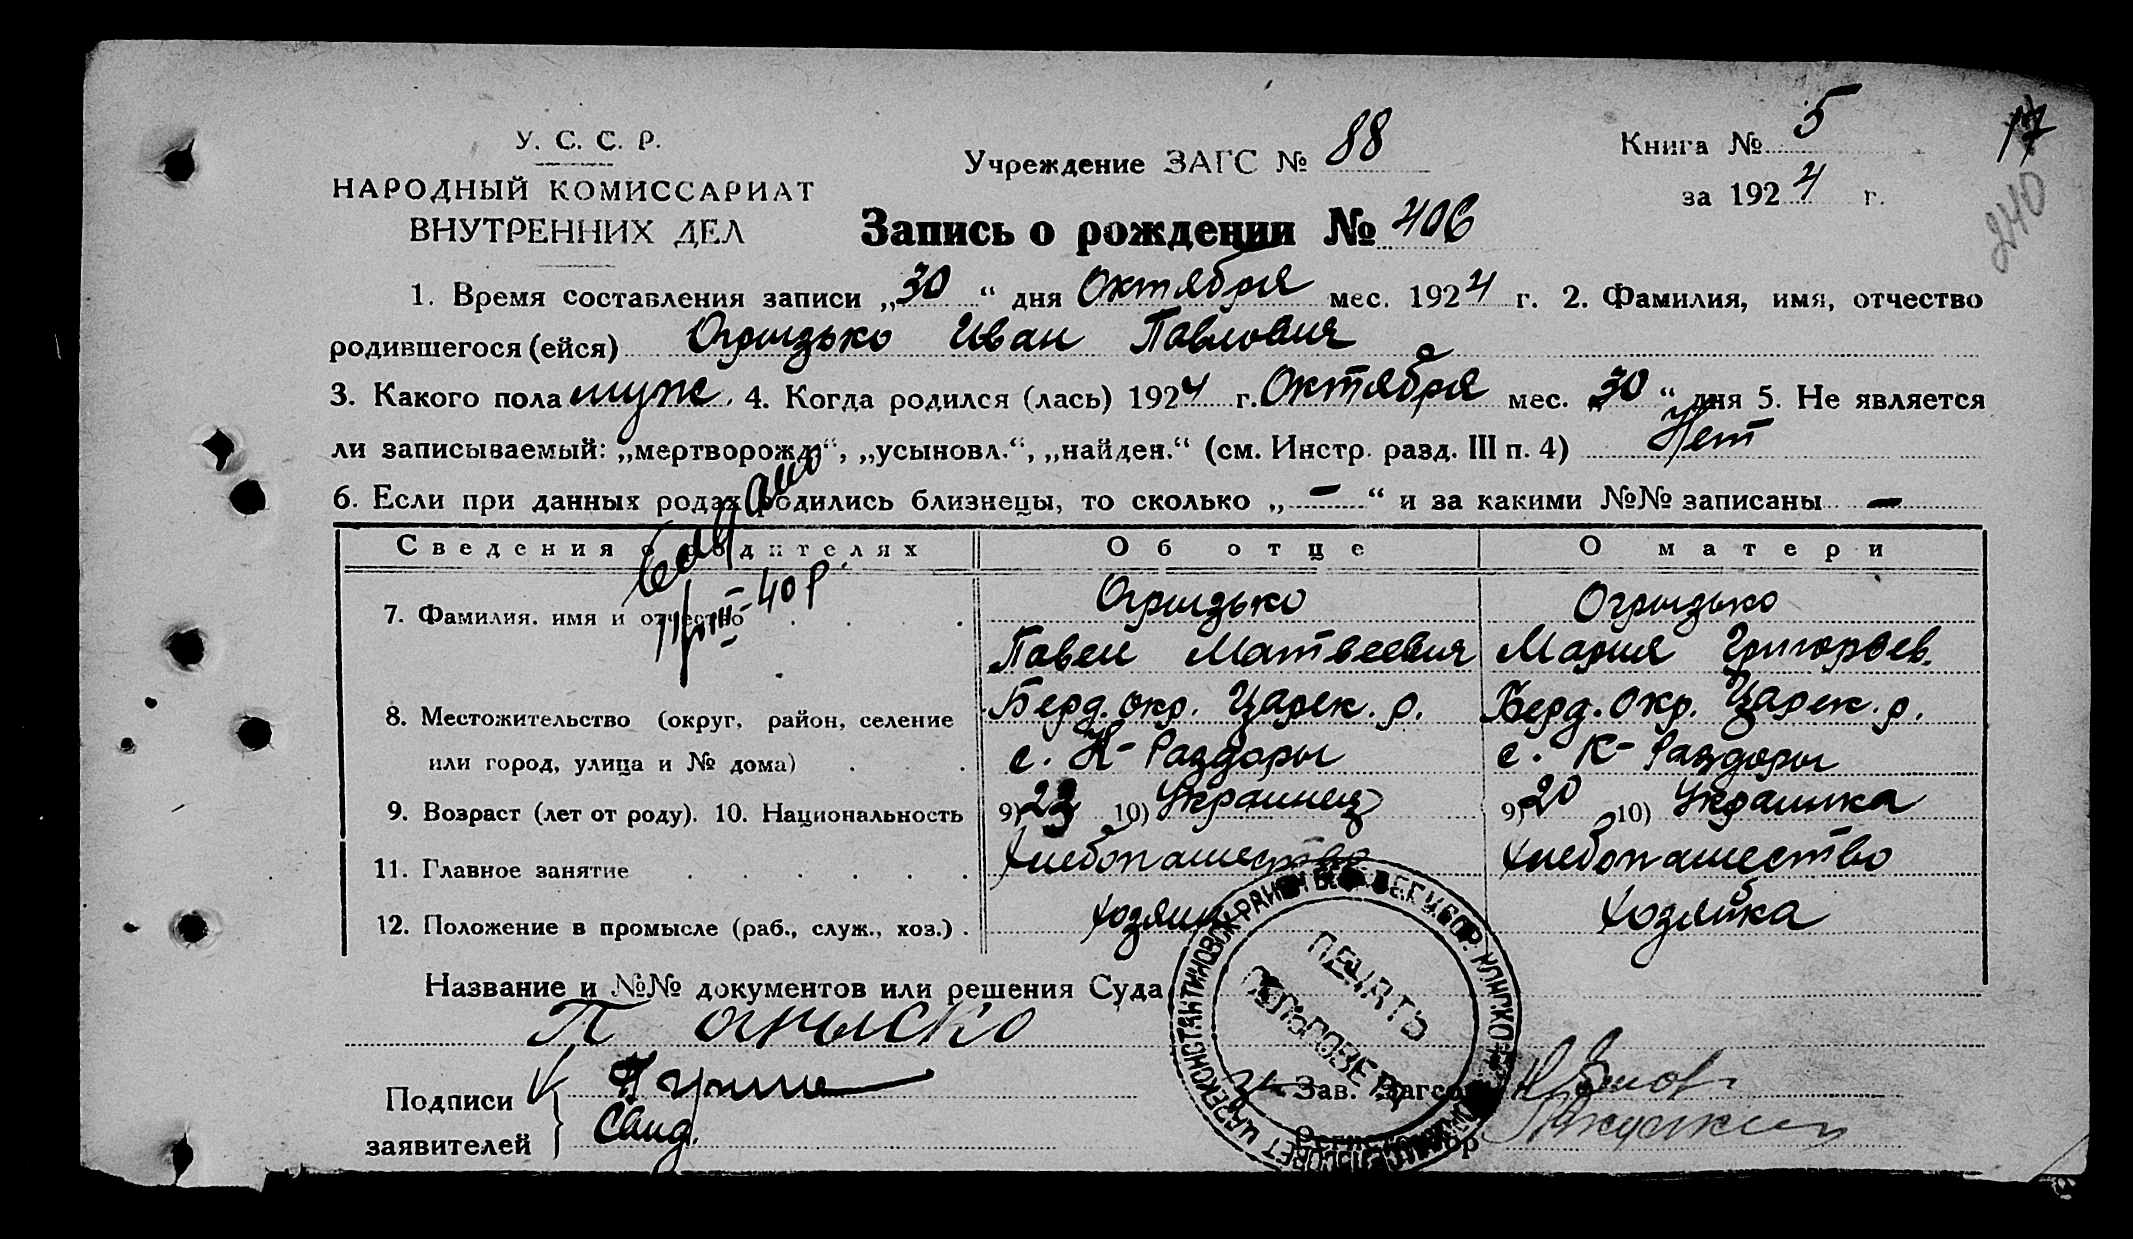 У. С. С. Р.
НАРОДНЫЙ КОМИССАРИАТ
ВНУТРЕННИХ ДЕЛ
Учреждение ЗАГС № 88
Книга № 5
за 1924 г.
17
240
Запись о рождении № 406
1. Время составления записи „30“ дня Октября мес. 1924 г. 2. Фамилия, имя, отчество
родившегося (ейся) Огрызько Иван Павлович
3. Какого пола муж. 4. Когда родился (лась) 1924 г. Октября мес. „30“ дня 5. Не является
ли записываемый: „мертворожд“, „усыновл.“, „найден.“ (см. Инстр. разд. III п. 4) Нет
6. Если при данных родах родились близнецы, то сколько „ — “ и за какими №№ записаны —
Сведения о родителях Об отце О матери
7. Фамилия, имя и отчество Огрызько Огрызько
40 р.
Павел Матвеевич Мария Григорьев.
8. Местожительство (округ, район, селение Берд. окр. Царек. р. Берд. окр. Царек. р.
или город, улица и № дома) с. К-Раздоры с. К-Раздоры
9. Возраст (лет от роду). 10. Национальность 9) 23 10) Украинец 9) 20 10) Украинка
11. Главное занятие Хлебопашество Хлебопашество
12. Положение в промысле (раб., служ., хоз.) Хозяин Хозяйка
Название и №№ документов или решения Суда
ПЕЧАТЬ
Подписи
заявителей
Зав. Загсом
Регистратор